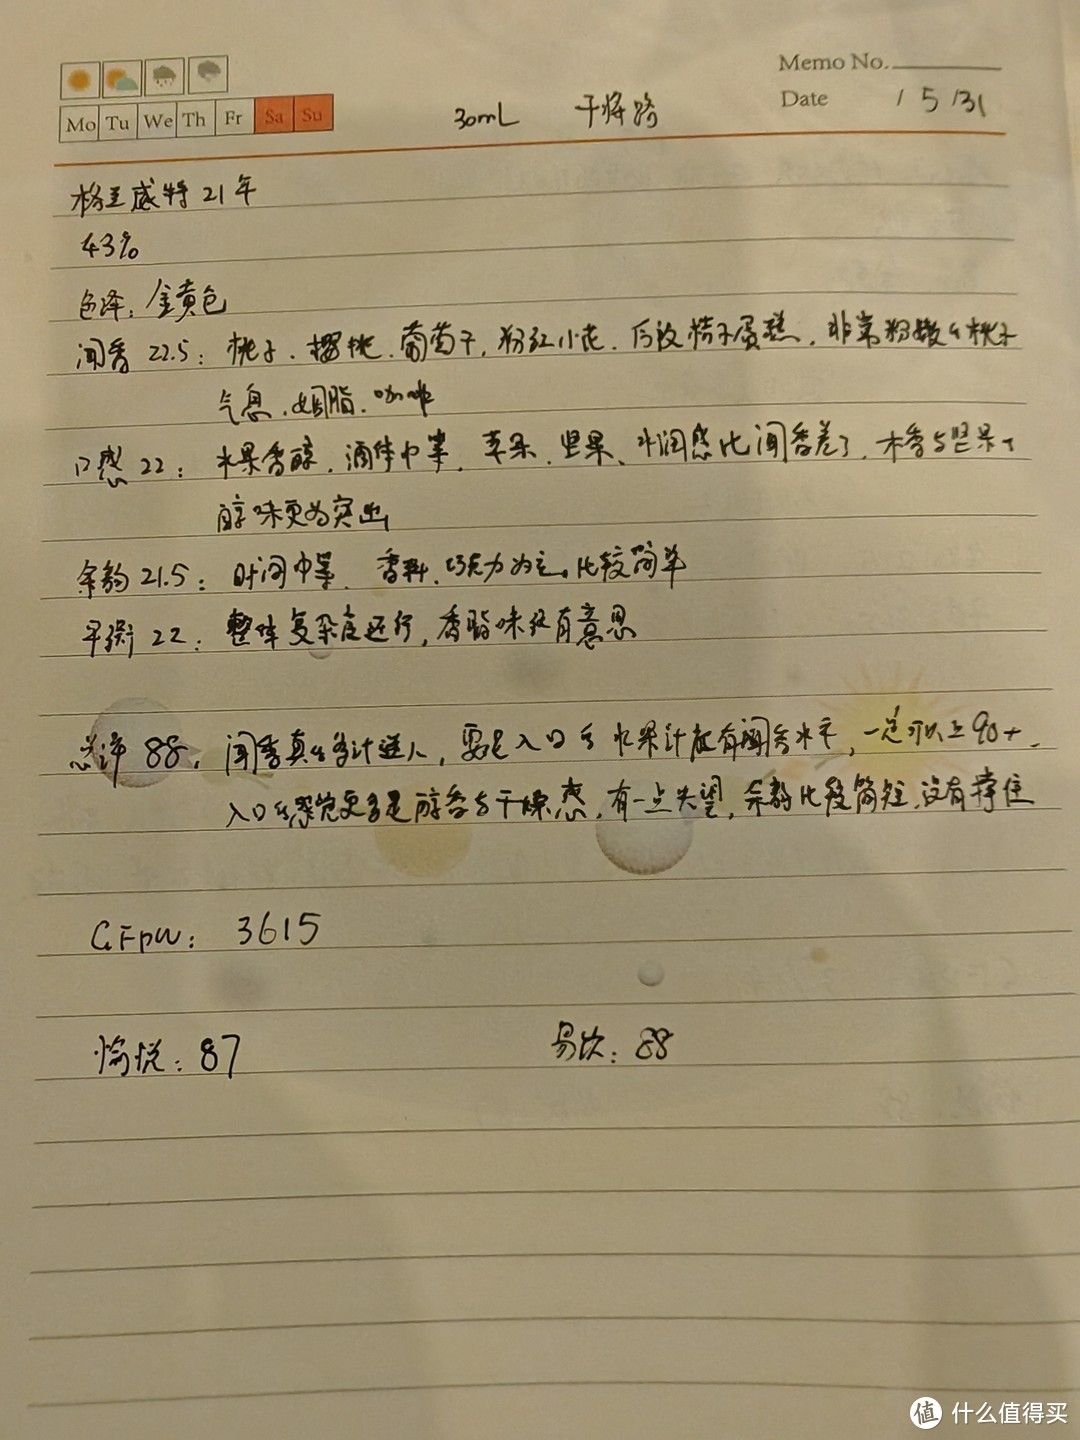 Memo No.
Mo Tu We Th Fr Sa Su
30mL 干将路
Date / 5 /31
格兰威特 21年
43%
色泽: 金黄色
闻香 22.5: 桃子. 樱桃. 葡萄干, 粉红小花. 后段橘子蛋糕, 非常粉嫩的桃子
气息. 胭脂. 咖啡
口感 22: 水果香醇. 酒体中等, 苹果. 坚果、水润感比闻香差了. 木香与坚果
醇味更为突出
余韵 21.5: 时间中等、香料. 巧克力为主。比较简单
平衡 22: 整体复杂度还行, 香脂味很有意思
总评 88: 闻香真的多汁迷人, 要是入口的水果汁能有闻香水平, 一定可以上90+.
入口的感觉更多是醇香与干燥感, 有一点失望, 余韵比较简短, 没有持住
GFpw: 3615
愉悦: 87 易饮: 88
值 什么值得买